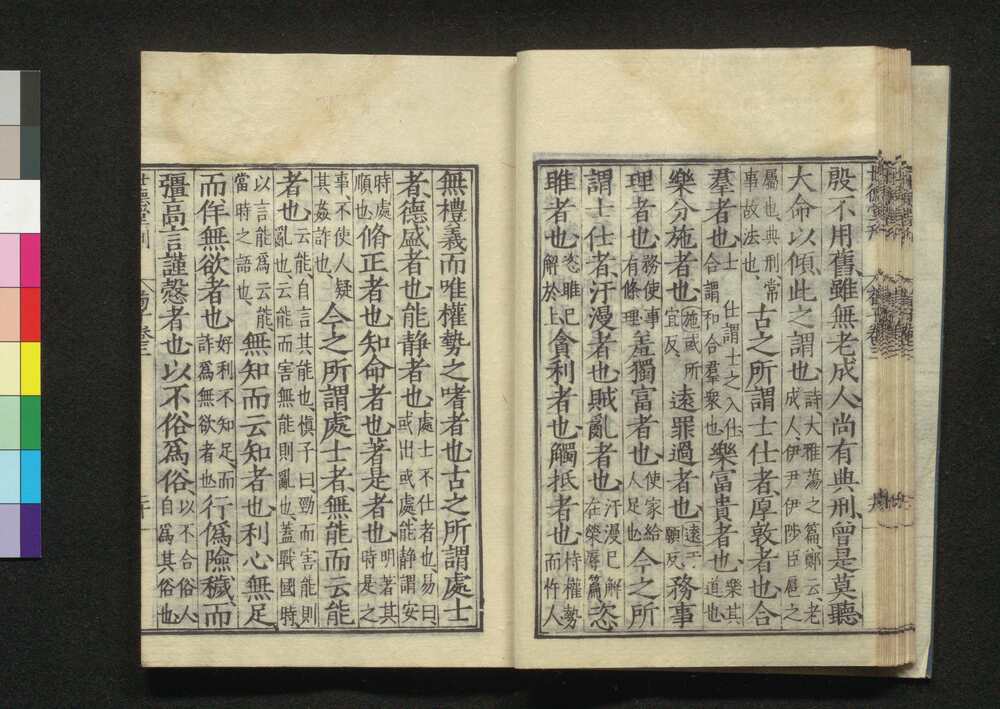 殷不用舊雖無老成人尚有典刑曾是莫聽
大命以傾此之謂也詩大雅蕩之篇鄭云老成人伊尹伊陟臣扈之
屬也典刑常事故法也古之所謂士仕者厚敦者也合
羣者也士仕謂士之入仕合謂和合羣衆也樂富貴者也樂其道也
樂分施者也施或所宜反遠罪過者也遠于願反務事
理者也務使事有條理羞獨富者也使家給人足也今之所
謂士仕者汙漫者也賊亂者也汙漫已解在榮辱篇恣
雎者也恣雎已解於上貪利者也觸抵者也恃權勢而忤人
無禮義而唯權勢之嗜者也古之所謂處士
者德盛者也能静者也處士不仕者也易曰或出或處能静謂安
時處順也脩正者也知命者也著是者也明著其時是之
事不使人疑其姦詐也今之所謂處士者無能而云能
者也云能自言其能也慎子曰勁而害能則亂也云能而害無能則亂也蓋戰國時
以言能爲云能當時之語也無知而云知者也利心無足
而佯無欲者也好利不知足而詐爲無欲者也行僞險穢而
彊高言謹愨者也以不俗爲俗以不合俗人自爲其俗也
世德堂刊